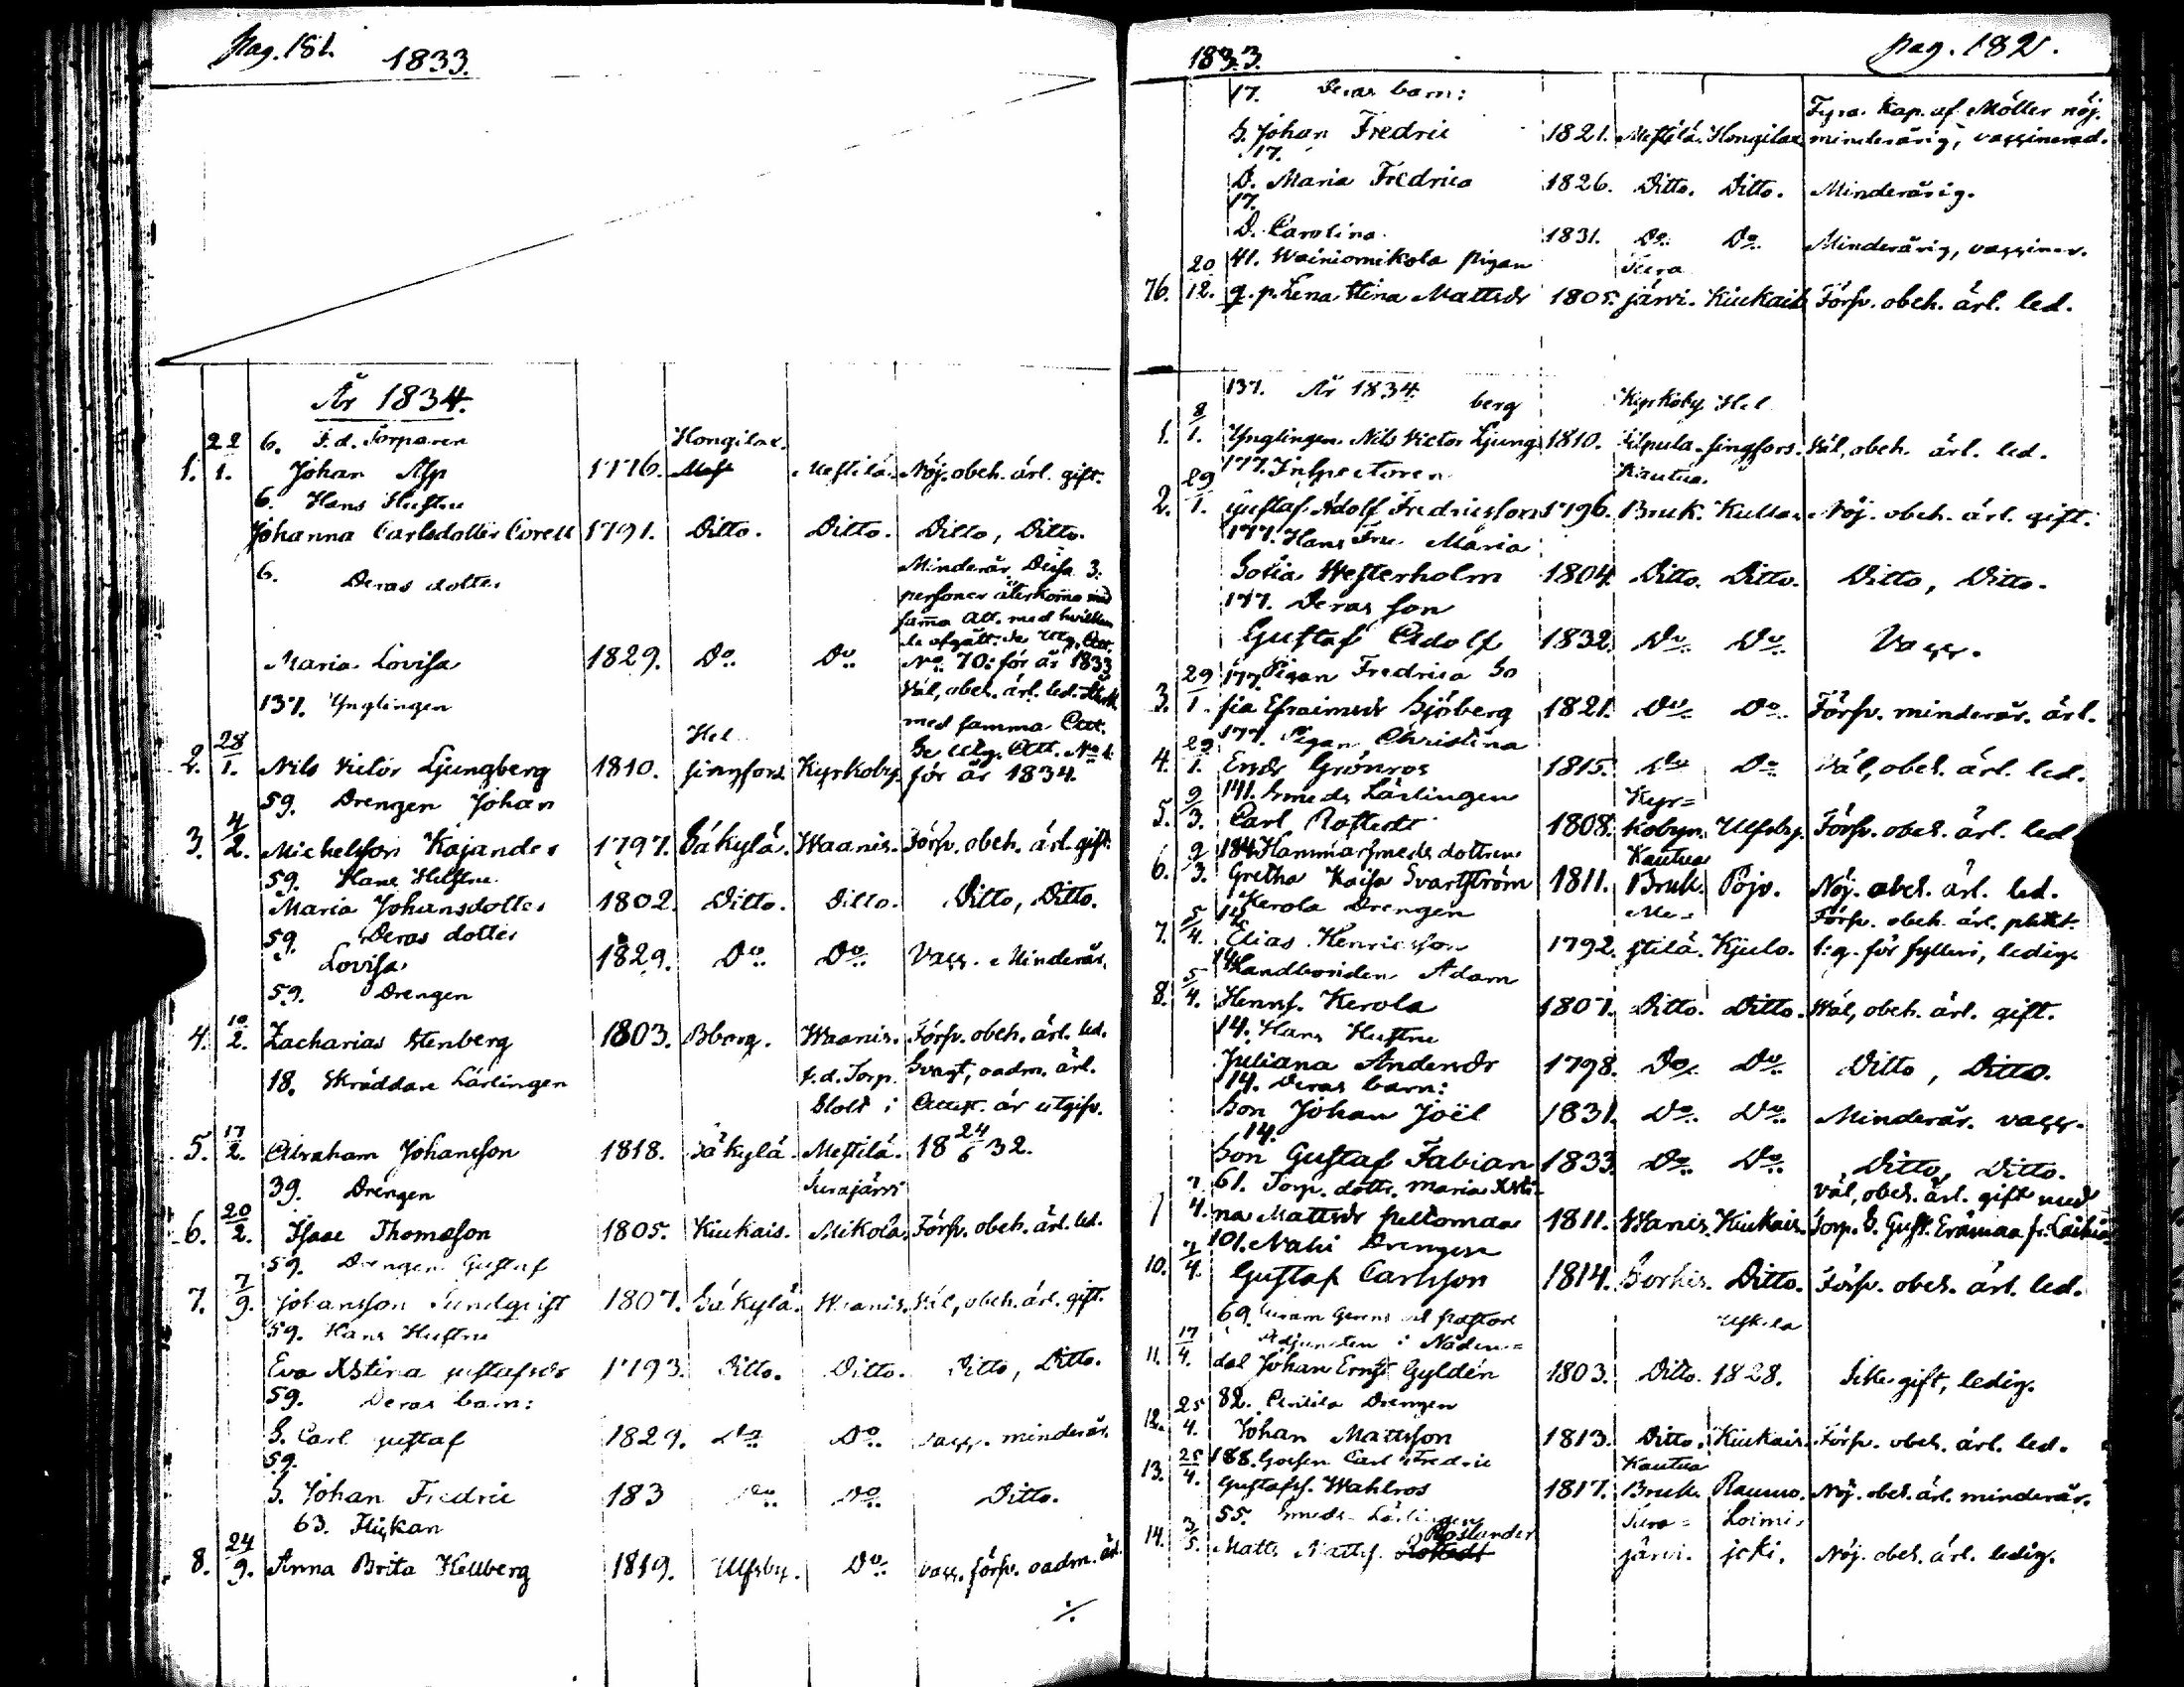 pag. 181.
1833.
År 1834.
22 6. F.d. Torparen Hongilax.
1. 1. Johan Alp 1776. Mest Mestilä. Nöj. obeh. ärl. gift.
6. Hans Hustru
Johanna Carlsdotter Corell 1791. Ditto. Ditto. Ditto, Ditto.
6. Deras dotter
Minderår. Dessa 3.
personer återkomma med
samma Att. med hvilken
de afgått. Se Utg. Att.
Maria Lovisa 1829. Do Do No. 70: för år 1833
137. Ynglingen
Väl, obeh. ärl. led.
med samma Att.
28 Hel Se Utg. Att. No 1.
2. 1. Nils Victor Ljungberg 1810. singfors Kyrkoby. för år 1834.
59. Drengen Johan
4
3. 2. Michelsson Kajander 1797. Säkylä. Waanis. Försv. obeh. ärl. gift.
59. Hans Hustru
Maria Johansdotter 1802. Ditto. Ditto. Ditto, Ditto.
59. Deras dotter
Lovisa 1829. Do Do Vacc. Minderår.
59. Drengen
10
4. 2. Zacharias Stenberg 1803. Bborg. Waanis. Försv. obeh. ärl. led.
18. Skräddare Lärlingen f.d. Torp. Svagt, oadm. ärl.
Slolt i Attest. är utgifv.
17
5. 2. Abraham Johansson 1818. Säkylä. Mestilä. 18 24/6 32.
39. Drengen Jurajärvi
20
6. 2. Isaac Thomasson 1805. Kiukais. Mikola. Försv. obeh. ärl. led.
59. Drengen Gustaf
7
7. 9. Johansson Sundqvist 1807. Säkylä. Waanis. Väl, obeh. ärl. gift.
59. Hans Hustru
Eva Xstina Gustafsdr 1793. Ditto. Ditto. Ditto, Ditto.
59. Deras barn:
S. Carl Gustaf 1829. Do Do Vacc. minderår.
59.
S. Johan Fredric 183 Do Do Ditto.
63. Flickan
24
8. 9. Anna Brita Hellberg 1819. Ulfsby. Do vacc. försv. oadm. ärl.
./.
1833.
pag. 182.
17. Deras barn:
Fyra kap. af Möller nöj.
S. Johan Fredric 1821. Mestilä. Hongilax. minderårig, vaccinerad.
17.
D. Maria Fredrica 1826. Ditto. Ditto. Minderårig.
17.
D. Carolina 1831. Do Do Minderårig, vacciner.
20 41. Wainiomikola pigan Jura
76. 12. g. p. Lena Stina Mattsdr 1805. järvi. Kiukais Försv. obeh. ärl. led.
137. År 1834.
8 berg Kyrkoby Hel
1. 1. Ynglingen Nils Victor Ljung 1810. singfors. Väl, obeh. ärl. led.
29 177. Inspectoren Kautua.
2. 1. Gustaf Adolf Fredricsson 1796. Bruk. Kullaa Nöj. obeh. ärl. gift.
177. Hans Fru Maria
Sofia Westerholm 1804. Ditto. Ditto. Ditto, Ditto.
177. Deras son
Gustaf Adolf 1832. Do Do Vacc.
29 177. Pigan Fredrica So
3. 1. fia Efraimsdr Sjöberg 1821. Do Do Försv. minderår. ärl.
29 177. Pigan Christina
4. 1. Ersdr Grönroos 1815. Do Do Väl, obeh. ärl. led.
9 141. Smeds Lärlingen Kyr=
5. 3. Carl Rostedt 1808. kobyn. Ulfsby. Försv. obeh. ärl. led
9 184. Hammarsmeds dottren Kautua
6. 3. Gretha Kaisa Svartström 1811. Bruk. Pojo. Nöj. obeh. ärl. led.
5 14. Kerola Drengen Me- Försv. obeh. ärl. plikt.
7. 4. Elias Henricsson 1792. stilä. Kjulo. 1:g. för fylleri, ledig.
5 14. Landbonden Adam
8. 4. Henrs. Kerola 1807. Ditto. Ditto. Väl, obeh. ärl. gift.
14. Hans Hustru
Juliana Andersdr 1798. Do. Do Ditto, Ditto.
14. Deras barn:
Son Johan Joël 1831. Do Do Minderår. vacc.
14.
Son Gustaf Fabian 1833. Do Do Ditto, Ditto.
7 61. Torp. dottr. Maria Xsti- Väl, obeh. ärl. gift med
9 4. na Mattsdr Peltomaa 1811. Wanis. Kiukais. Torp. S. Gust. Erämaa
7 101. Nahi Drengen
10. 4. Gustaf Carlsson 1814. Sorkis. Ditto. Försv. obeh. ärl. led.
69.
17 Adjuncten i Nåden=
11. 4. dal Johan Ernst Gyldén 1803. Ditto. 1828. Icke gift, ledig.
25 82. Drengen
12. 4. Johan Mattsson 1813. Ditto. Kiukais. Försv. obeh. ärl. led.
25 188. Gossen Carl Fredric Kautua
13. 4. Gustafs. Wahlros 1817. Bruk. Raumo. Nöj. obeh. ärl. minderår.
3 55. Smeds Lärlingen Roslander Jura= Loimi
14. 5. Matts Matts. Rostedt järvi. joki. Nöj. obeh. ärl. ledig.